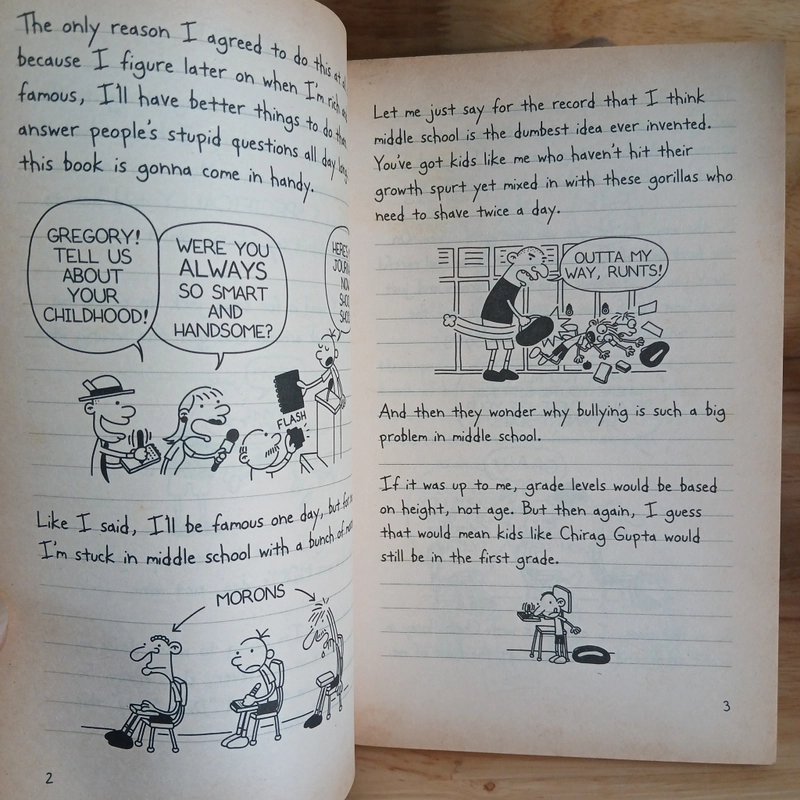 The only reason I agreed to do this at
because I figure later on when I'm rich
famous, I'll have better things to do than
answer people's stupid questions all day long
this book is gonna come in handy.
GREGORY!
TELL US
ABOUT
YOUR
CHILDHOOD!
WERE YOU
ALWAYS
SO SMART
AND
HANDSOME?
FLASH
Like I said, I'll be famous one day, but
I'm stuck in middle school with a bunch of
MORONS
2
Let me just say for the record that I think
middle school is the dumbest idea ever invented.
You've got kids like me who haven't hit their
growth spurt yet mixed in with these gorillas who
need to shave twice a day.
OUTTA MY
WAY, RUNTS!
And then they wonder why bullying is such a big
problem in middle school.
If it was up to me, grade levels would be based
on height, not age. But then again, I guess
that would mean kids like Chirag Gupta would
still be in the first grade.
3